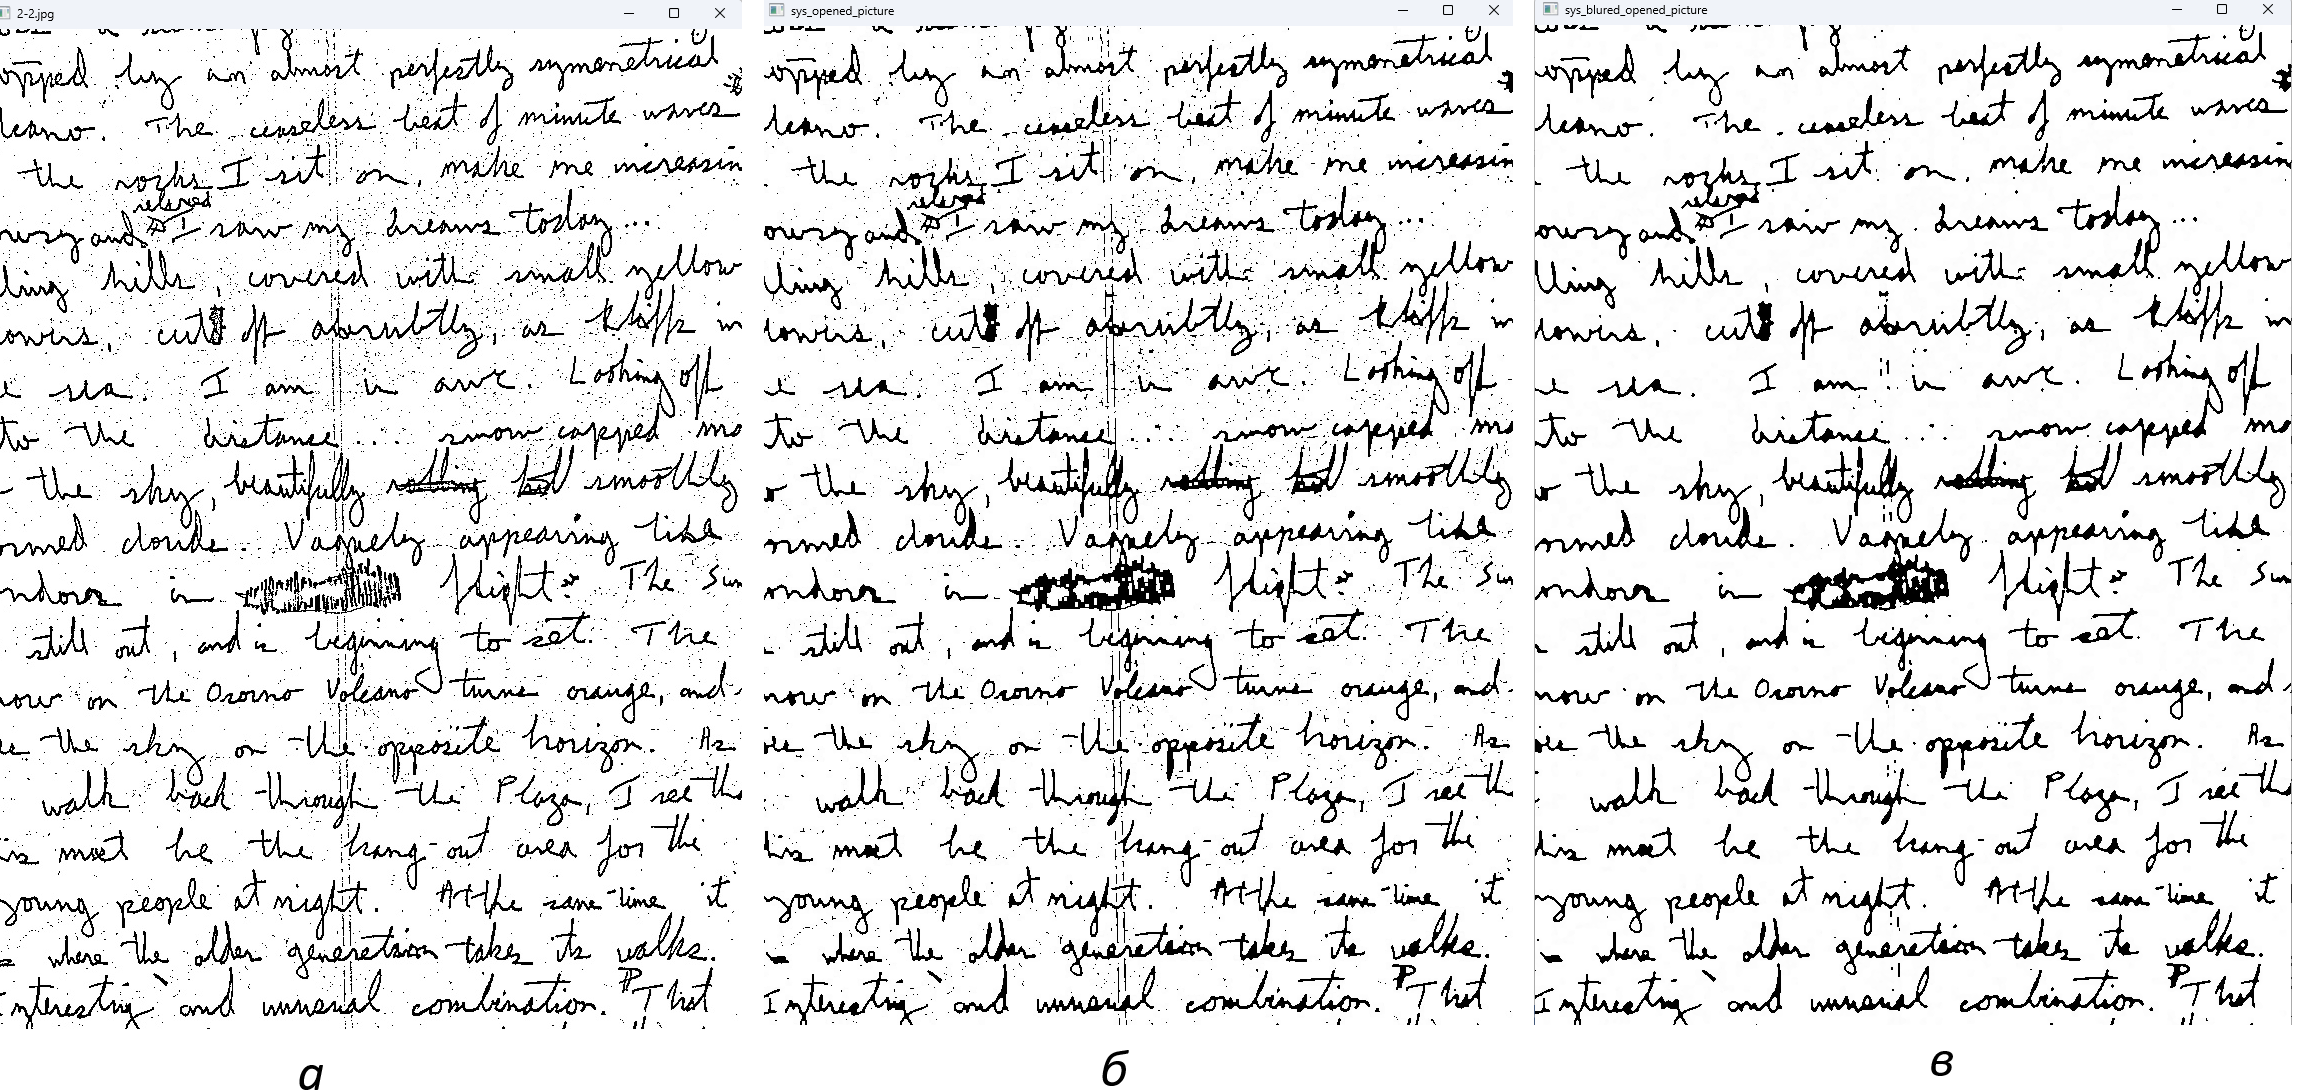 2-2.jpg
opped by an almost perfectly symmetrical
lcano. The ceaseless beat of minute waves
the rocks I sit on, make me increasin
relaxed
owsy and I saw my dreams today...
ling hills, covered with small yellow
owers, cuts off abrubtly, as cliffs in
e sea. I am in awe. Looking off
to the distance... snow capped mo
the sky, beautifully rolling but smoothly
ormed clouds. Vaguely appearing like
ndors in flight. The Sun
still out, and is beginning to set. The
now on the Osorno Volcano turns orange, and
ee the sky on the opposite horizon. As
walk back through the Plaza, I see th
is must be the hang-out area for the
young people at night. At the same time it
where the older generation takes its walks.
Interesting and unusual combination. That
а
sys_opened_picture
opped by an almost perfectly symmetrical
lcano. The ceaseless beat of minute waves
the rocks I sit on, make me increasin
relaxed
owsy and I saw my dreams today...
lling hills, covered with small yellow
lowers, cuts off abrubtly, as cliffs in
e sea. I am in awe. Looking off
to the distance... snow capped mo
o the sky, beautifully rolling but smoothly
ormed clouds. Vaguely appearing like
ondors in flight. The Sun
still out, and is beginning to set. The
now on the Osorno Volcano turns orange, and
ee the sky on the opposite horizon. As
walk back through the Plaza, I see th
his must be the hang-out area for the
young people at night. At the same time it
where the older generation takes its walks.
Interesting and unusual combination. That
б
sys_blured_opened_picture
opped by an almost perfectly symmetrical
lcano. The ceaseless beat of minute waves
the rocks I sit on, make me increasin
relaxed
owsy and I saw my dreams today...
lling hills, covered with small yellow
lowers, cuts off abrubtly, as cliffs in
e sea. I am in awe. Looking off
to the distance... snow capped mo
o the sky, beautifully rolling but smoothly
ormed clouds. Vaguely appearing like
ondors in flight. The Sun
still out, and is beginning to set. The
now on the Osorno Volcano turns orange, and
ee the sky on the opposite horizon. As
walk back through the Plaza, I see th
his must be the hang-out area for the
young people at night. At the same time it
where the older generation takes its walks.
Interesting and unusual combination. That
в